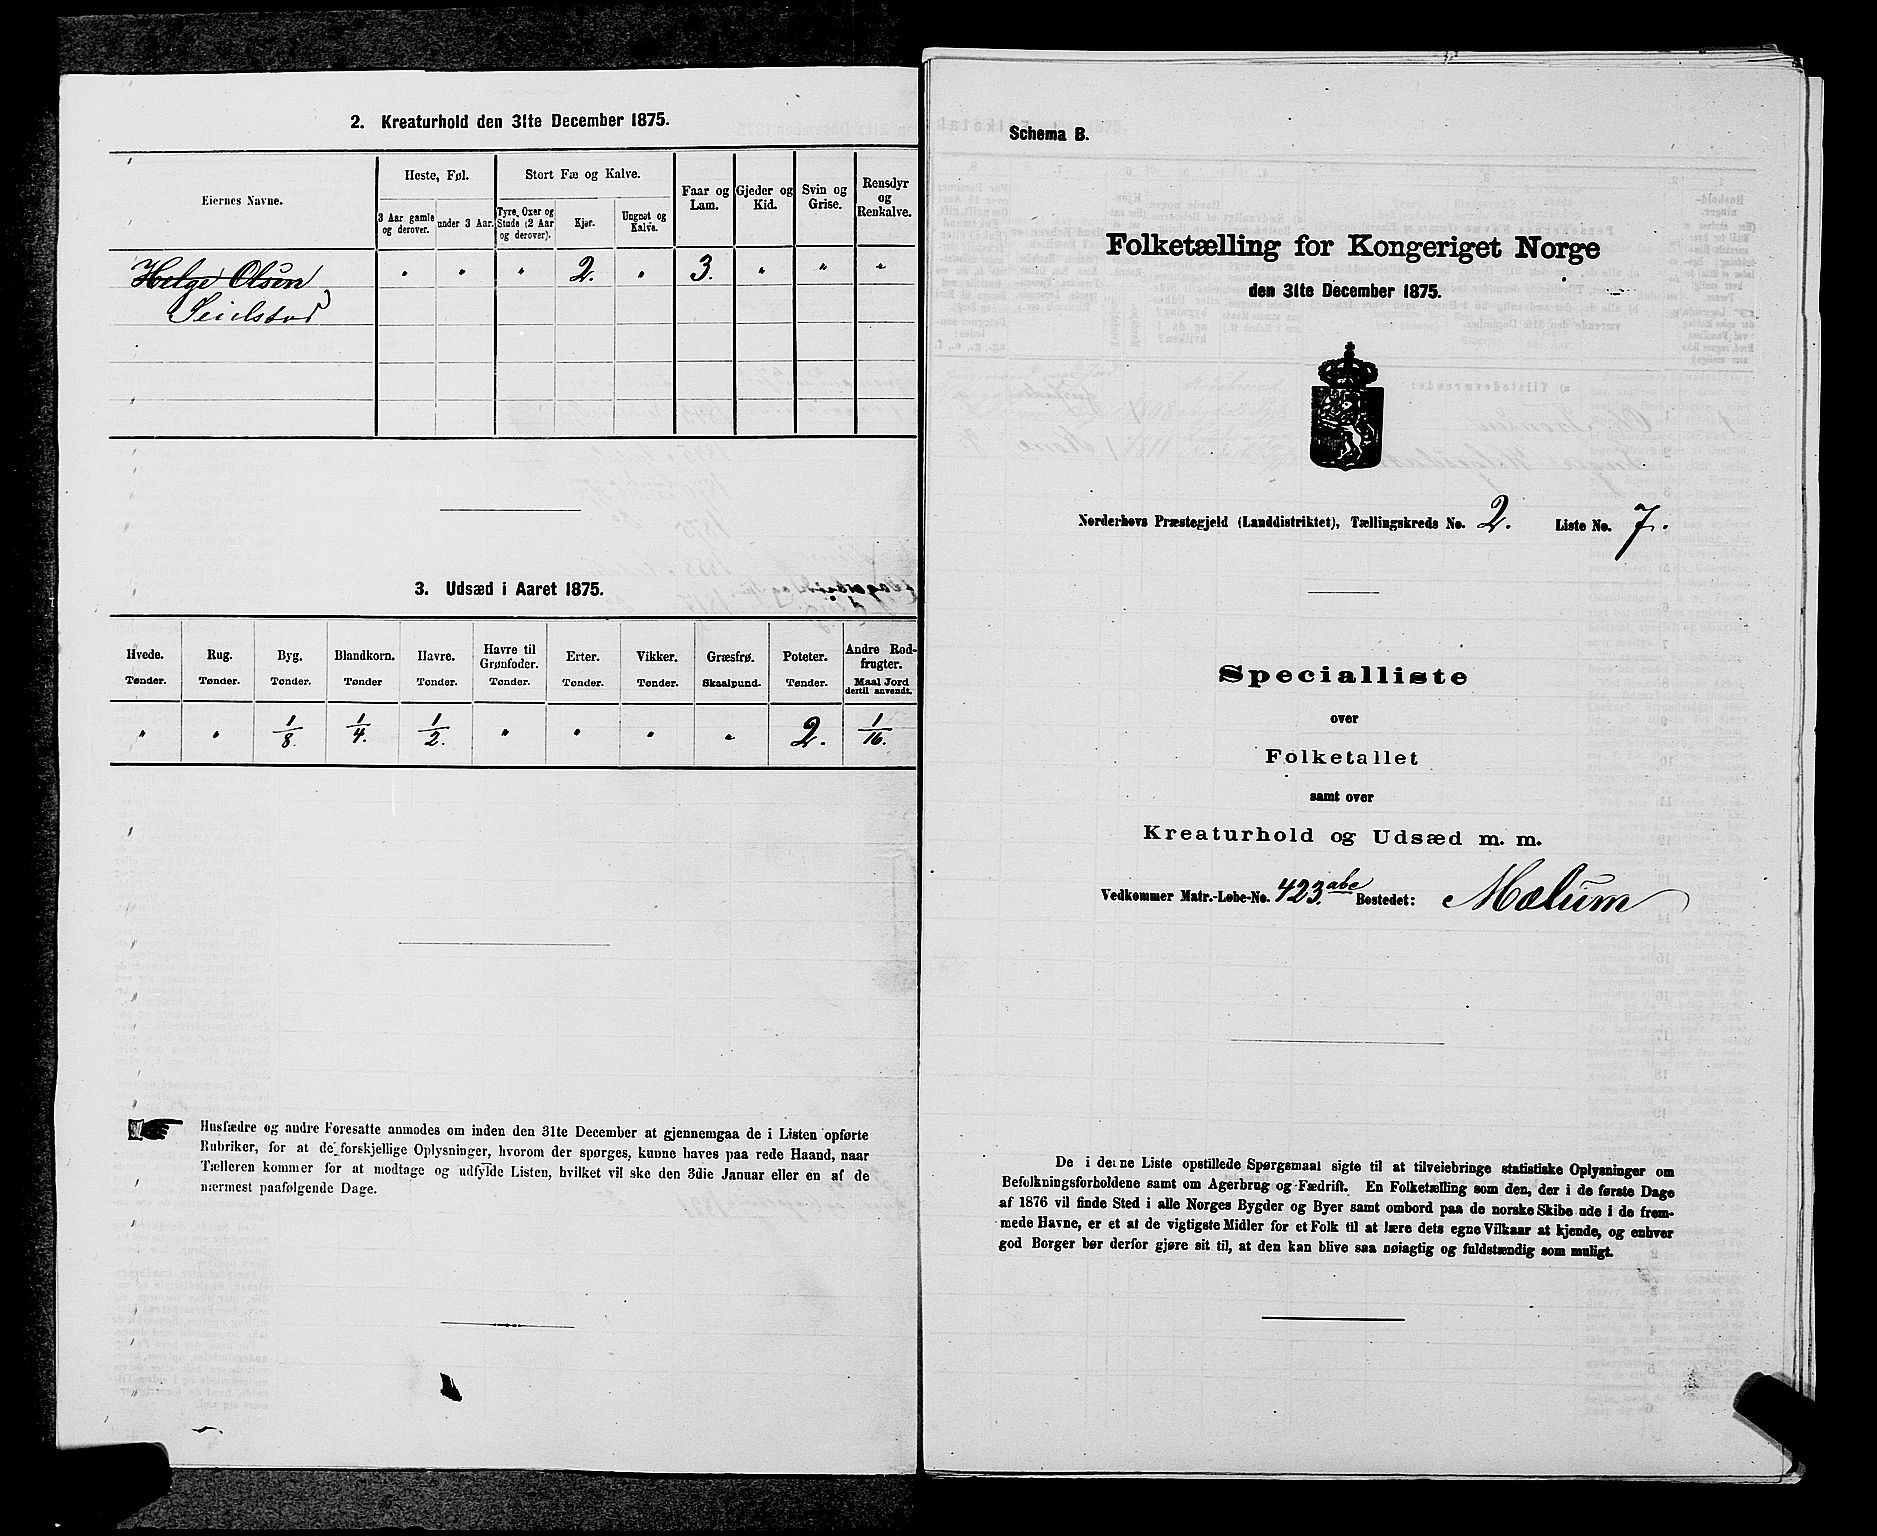 2. Kreaturhold den 31te December 1875.
Eiernes Navne.
Heste, Føl.
Stort Fæ og Kalve.
Faar og Lam.
Gjeder og Kid.
Svin og Grise.
Rensdyr og Renkalve.
3 Aar gamle og derover.
under 3 Aar.
Tyre, Oxer og Stude (2 Aar og derover).
Kjør.
Ungnøt og Kalve.
Helge Olsen " " " 2. " 3. " " "
Seielstad
3. Udsæd i Aaret 1875.
Hvede. Rug. Byg. Blandkorn. Havre. Havre til Grønfoder. Erter. Vikker. Græsfrø. Poteter. Andre Rodfrugter.
Tønder. Tønder. Tønder. Tønder Tønder. Tønder. Tønder. Tønder. Skaalpund. Tønder. Maal Jord dertil anvendt.
" " 1/8. 1/4. 1/2. " " " " 2. 1/16.
Husfædre og andre Foresatte anmodes om inden den 31te December at gjennemgaa de i Listen opførte
Rubriker, for at de forskjellige Oplysninger, hvorom der spørges, kunne haves paa rede Haand, naar
Tælleren kommer for at modtage og udfylde Listen, hvilket vil ske den 3die Januar eller en af de
nærmest paafølgende Dage.
Schema B.
Folketælling for Kongeriget Norge
den 31te December 1875.
Norderhovs Præstegjeld (Landdistriktet), Tællingskreds No. 2. Liste No. 7.
Specialliste
over
Folketallet
samt over
Kreaturhold og Udsæd m. m.
Vedkommer Matr.-Løbe-No. 423.abc Bostedet: Mælum
De i denne Liste opstillede Spørgsmaal sigte til at tilveiebringe statistiske Oplysninger om
Befolkningsforholdene samt om Agerbrug og Fædrift. En Folketælling som den, der i de første Dage
af 1876 vil finde Sted i alle Norges Bygder og Byer samt ombord paa de norske Skibe ude i de frem-
mede Havne, er et at de vigtigste Midler for et Folk til at lære dets egne Vilkaar at kjende, og enhver
god Borger bør derfor gjøre sit til, at den kan blive saa nøiagtig og fuldstændig som muligt.